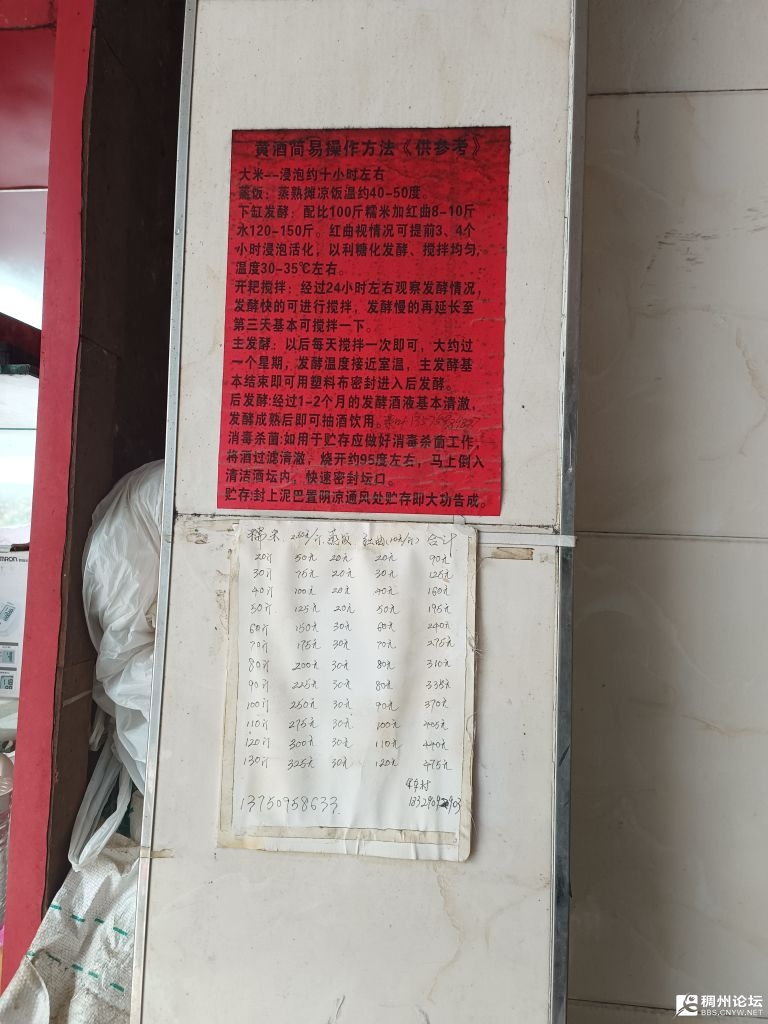 黄酒简易操作方法《供参考》
大米--浸泡约十小时左右
蒸饭：蒸熟摊凉饭温约40-50度
下缸发酵：配比100斤糯米加红曲8-10斤
水120-150斤。红曲视情况可提前3、4个
小时浸泡活化，以利糖化发酵、搅拌均匀,
温度30-35℃左右。
开耙搅拌：经过24小时左右观察发酵情况,
发酵快的可进行搅拌，发酵慢的再延长至
第三天基本可搅拌一下。
主发酵：以后每天搅拌一次即可，大约过
一个星期，发酵温度接近室温，主发酵基
本结束即可用塑料布密封进入后发酵。
后发酵:经过1-2个月的发酵酒液基本清澈,
发酵成熟后即可抽酒饮用。
消毒杀菌:如用于贮存应做好消毒杀菌工作,
将酒过滤清澈，烧开约95度左右，马上倒入
清洁酒坛内，快速密封坛口。
贮存:封上泥巴置阴凉通风处贮存即大功告成。
糯米 2.50元/斤 蒸饭 红曲(10元/斤) 合计
20斤 50元 20元 20元 90元
30斤 75元 20元 30元 125元
40斤 100元 20元 40元 160元
50斤 125元 20元 50元 195元
60斤 150元 30元 60元 240元
70斤 175元 30元 70元 275元
80斤 200元 30元 80元 310元
90斤 225元 30元 80元 335元
100斤 250元 30元 90元 370元
110斤 275元 30元 100元 405元
120斤 300元 30元 110元 440元
130斤 325元 30元 120元 475元
13750958633
稠州论坛
BBS.CNYW.NET